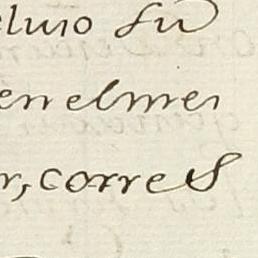 eluio su
en elmei
r, corres